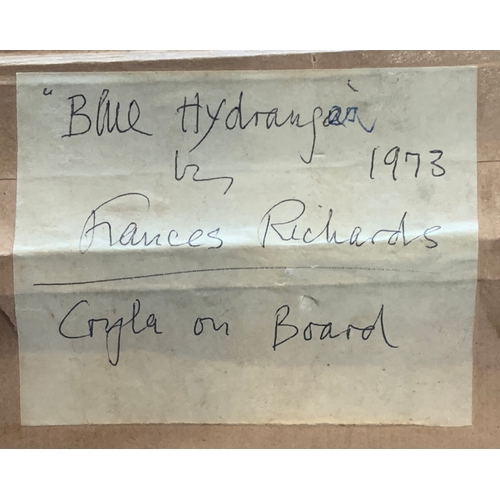 "Blue Hydrangea"
by 1973
Frances Richards
Cryla on Board